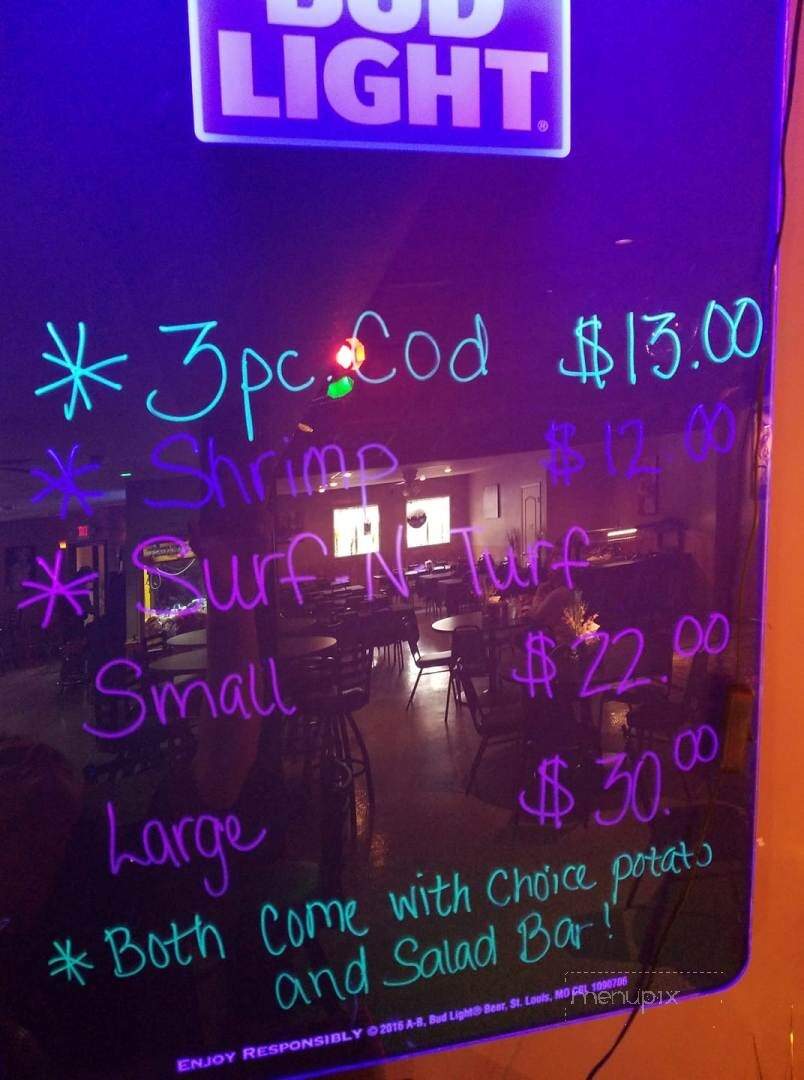 BUD
LIGHT®
* 3pc. Cod $13.00
* Shrimp $12.00
* Surf N Turf
Small $22.00
Large $30.00
* Both Come with Choice potato
and Salad Bar!
ENJOY RESPONSIBLY © 2016 A-B, Bud Light® Beer, St. Louis, MO CBL 1090706
menupix